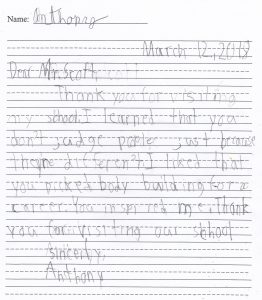 Name: Anthony
March 12, 2018
Dear Mr. Scott
Thank you for visiting
my school. I learned that you
don't judge people just because
they're different. I liked that
you picked body building for a
career. You inspired me. Thank
you for visiting our school
sincerly,
Anthony